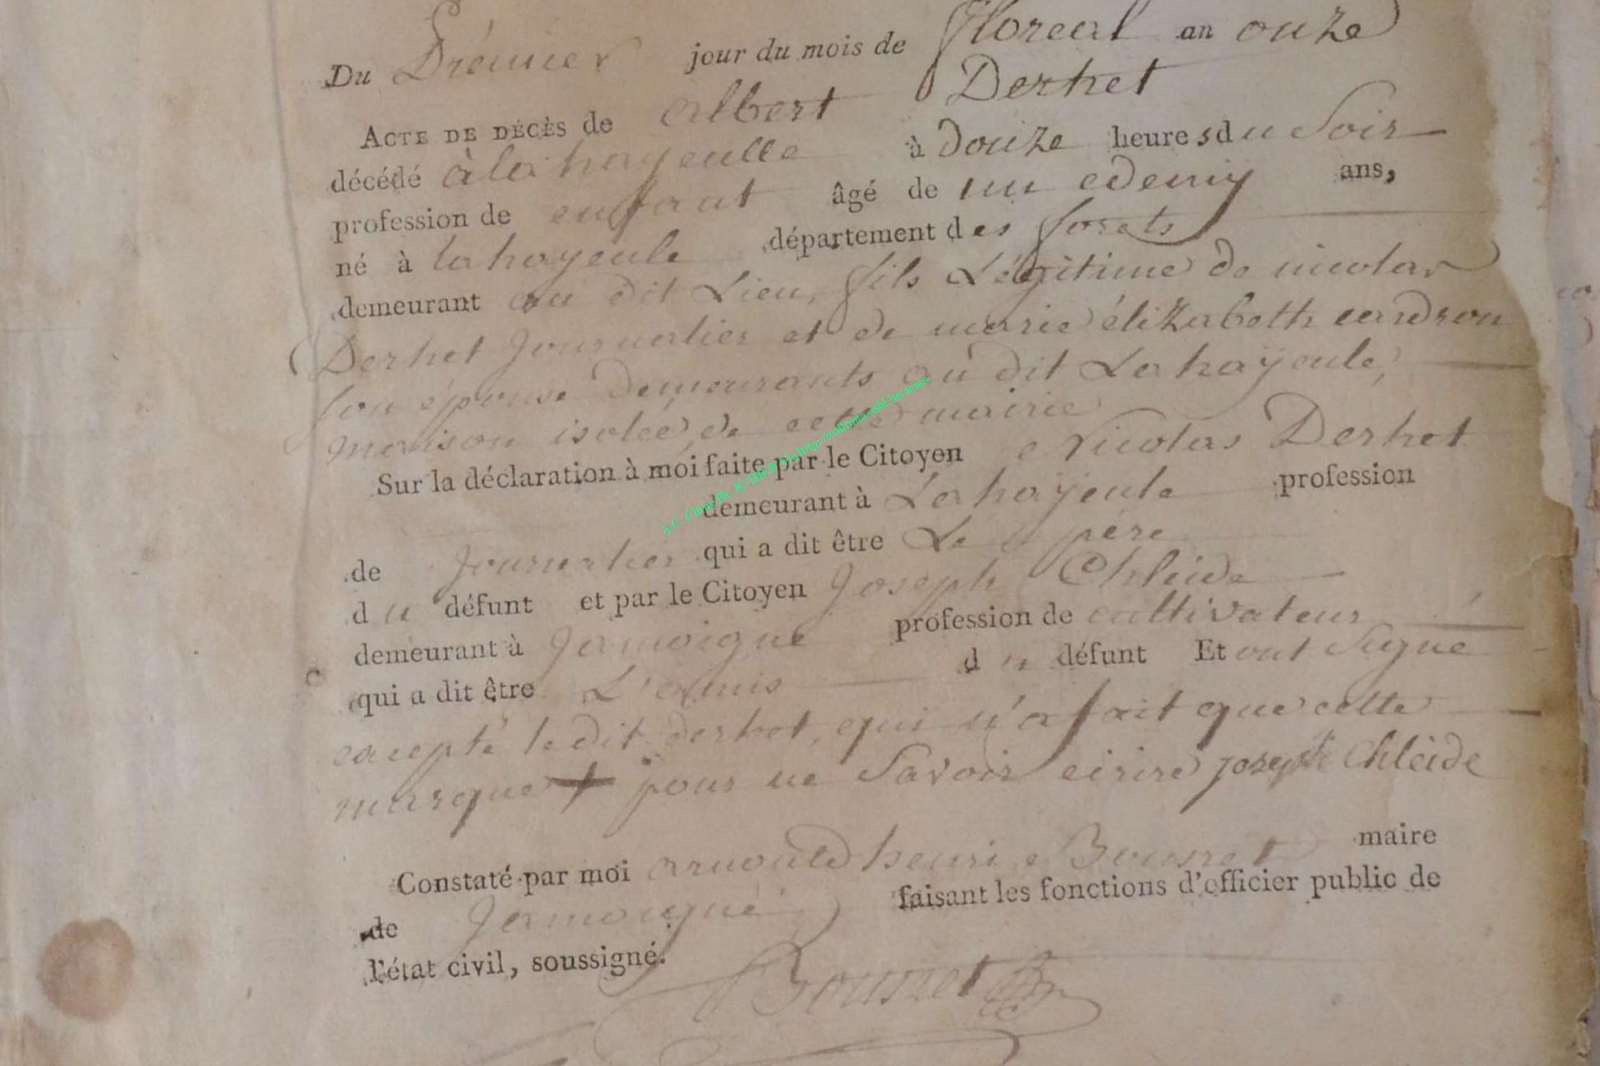 Du Prémier jour du mois de floreal an onze
ACTE DE DÉCÈS de albert Derhet
décédé à la hayeulle à Douze heures du Soir
profession de enfant âgé de un edemy ans,
né à la hayeule département des forets
demeurant au dit Lieu, fils Légitime de nicolas
Derhet Journalier et de marie élizabeth
son épouse demeurants au dit La hayeule,
maison isolée, de cette mairie
Sur la déclaration à moi faite par le Citoyen Nicolas Derhet
demeurant à La hayeule profession
de Journalier qui a dit être Le père
du défunt et par le Citoyen Joseph Chleide
demeurant à Jamoigne profession de cultivateur
qui a dit être L'amis du défunt Et ont Signé
le dit derhet, qui n'a fait que cette
marque pour ne Savoir ecrire joseph Chleide
Constaté par moi arnould henri Bousret maire
de Jamoigne faisant les fonctions d'officier public de
l'état civil, soussigné.
Bousret